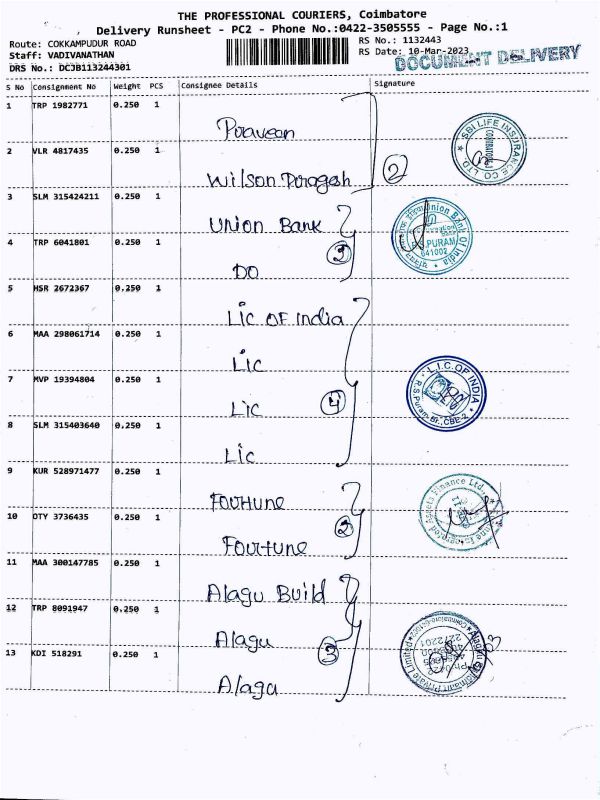 THE PROFESSIONAL COURIERS, Coimbatore
Delivery Runsheet - PC2 - Phone No.:0422-3505555 - Page No.:1
Route: COKKAMPUDUR ROAD
Staff: VADIVANATHAN
DRS No.: DCJB113244301
RS No.: 1132443
RS Date: 10-Mar-2023
DOCUMENT DELIVERY
S No Consignment No Weight PCS Consignee Details Signature
1 TRP 1982771 0.250 1 Praveen
SBI LIFE INSURANCE CO LTD.
2 VLR 4817435 0.250 1 Wilson
2
3 SLM 315424211 0.250 1 Union Bank
Union Bank Of India
641002
4 TRP 6041801 0.250 1 DO
5 HSR 2672367 0.250 1 Lic OF India
6 MAA 298061714 0.250 1 Lic
7 MVP 19394804 0.250 1 Lic
4
L.I.C.OF INDIA
R.S.Puram Br., CBE-2
8 SLM 315403640 0.250 1 Lic
9 KUR 528971477 0.250 1 Fourtune
Assets Finance Ltd.
10 OTY 3736435 0.250 1 Fourtune
2
11 MAA 300147785 0.250 1 Alagu Build
12 TRP 8091947 0.250 1 Alagu
3
Private Limited
13 KDI 518291 0.250 1 Alagu